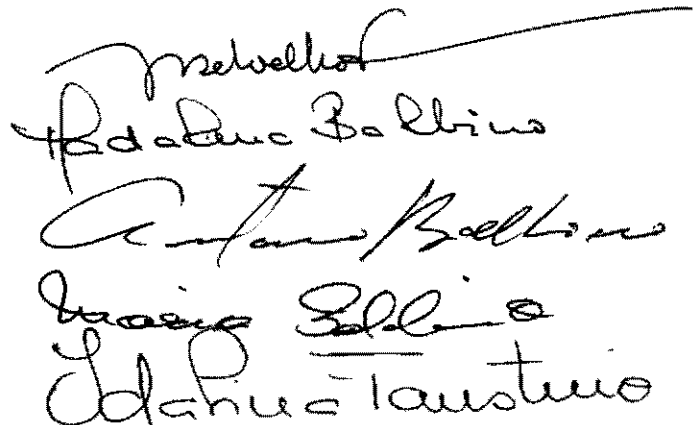 Madalena Balbino
Antonio Balbino
Maria Balbino
Idalina Faustino